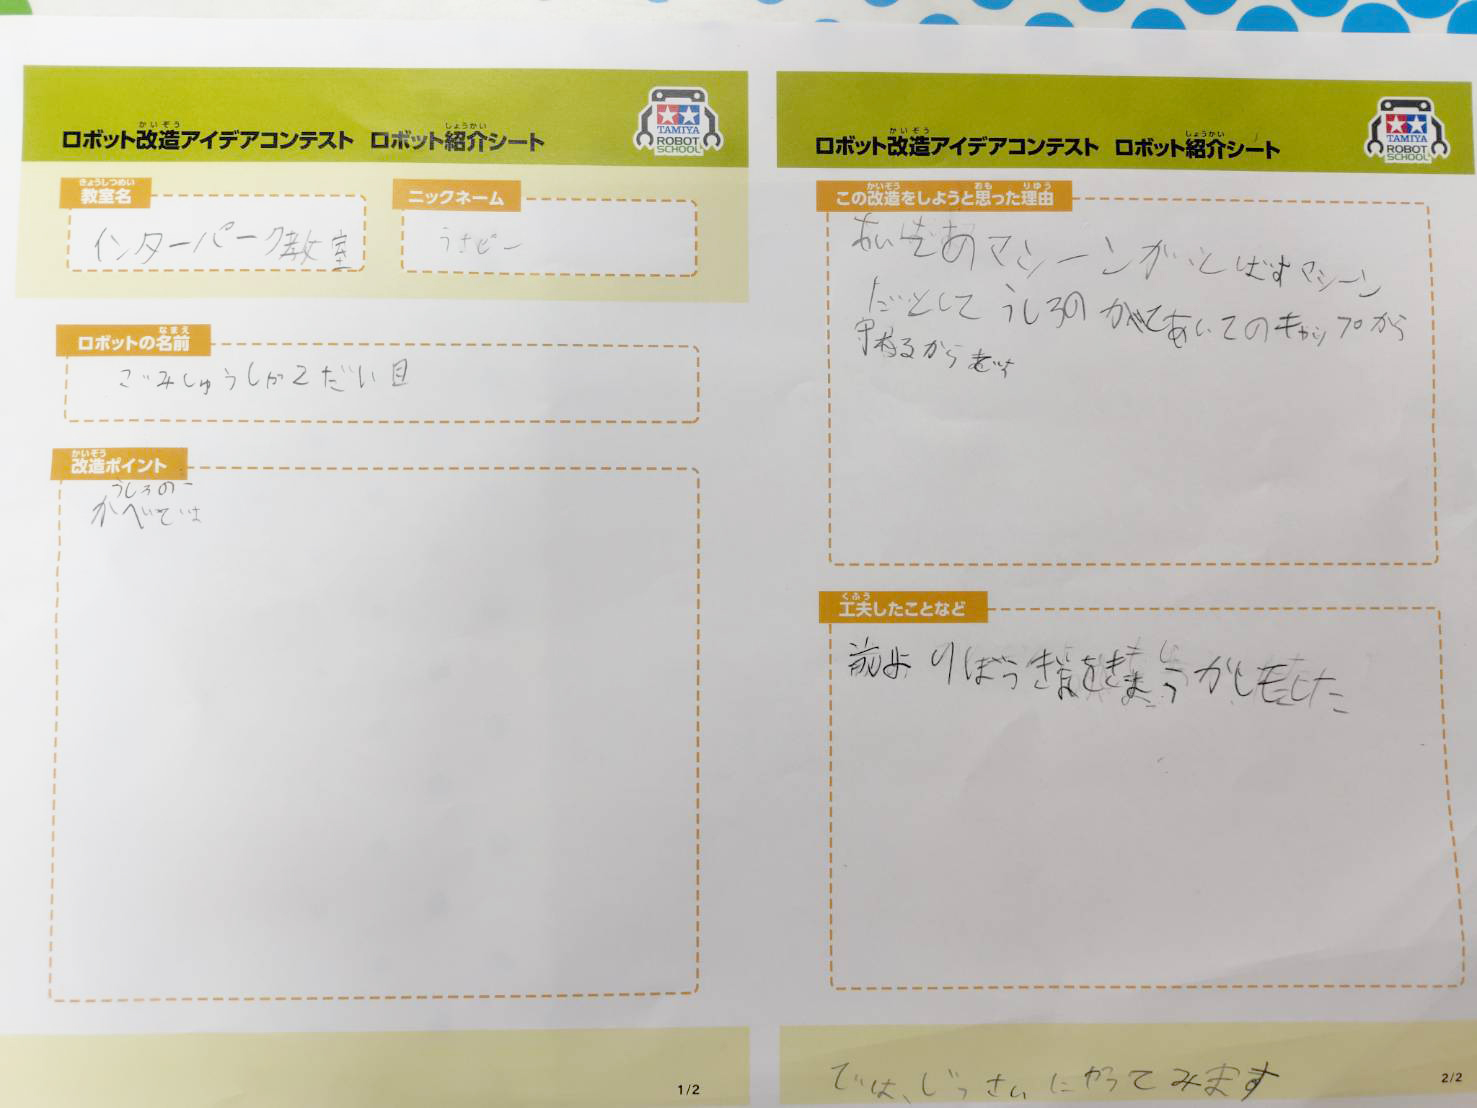 かいぞう しょうかい
ロボット改造アイデアコンテスト ロボット紹介シート
TAMIYA
ROBOT
SCHOOL
きょうしつめい
教室名
インターパーク教室
ニックネーム
うさぴー
なまえ
ロボットの名前
ごみしゅうしゅう2だい目
かいぞう
改造ポイント
うしろの
かべでは
1/2
かいぞう しょうかい
ロボット改造アイデアコンテスト ロボット紹介シート
TAMIYA
ROBOT
SCHOOL
かいぞう おも りゆう
この改造をしようと思った理由
マシーンがとばすマシーン
だとして うしろの かべであいてのキャップから
守れるから
くふう
工夫したことなど
前よりぼうぎょ
では、じっさいにやってみます
2/2